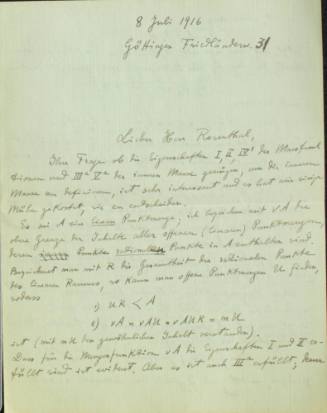 8 Juli 1916
Göttingen Friedländerw. 31
Lieber Herr Rosenthal,
Ihre Frage ob die Eigenschaften I, II, IV' der Massfunk
tionen und IIIa Va des innern Masses genügen, um die inneren
Masse zu definieren, ist sehr interessant und es hat mir einige
Mühe gekostet, sie zu entscheiden.
Es sei A eine lineare Punktmenge; ich bezeichne mit νA die
obere Grenze der Inhalte aller offenen (linearen) Punktmengen,
deren Punkte in A enthalten sind.
Bezeichnet man mit R die Gesamtheit der rationalen Punkte
des linearen Raumes, so kann man offene Punktmengen U finden,
sodass
1) UR < A
2) νA = νAU = νAUR = mU
ist (mit mU den gewöhnlichen Inhalt verstanden).
Dass für die Mengenfunktion νA die Eigenschaften I und II er-
füllt sind ist evident. Aber es ist auch IIIa erfüllt; kann